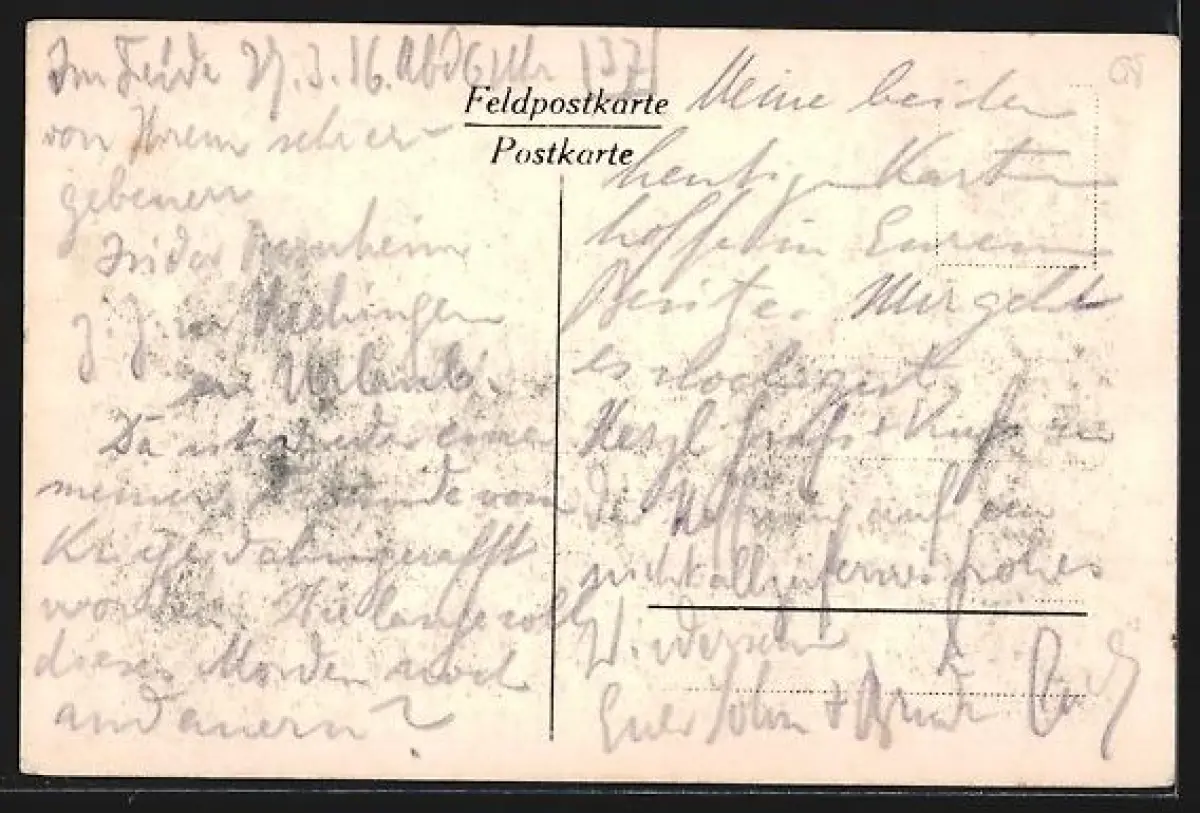 Im Felde 27.3.16. Abd 6 Uhr (37)
von Ihrem sehr er-
gebenen
Isidor Bernheim
z. Z. in Hechingen
in Urlaub.
Da ist wieder einer
meiner Freunde vom
Kriege dahingerafft
worden. Wie lange soll
dieses Morden noch
andauern?
Feldpostkarte
Postkarte
Meine beiden
heutigen Karten
hoffe in Eurem
Besitze. Mir geht
es noch gut.
Herzl. Gruß + Kuß in
der Hoffnung auf ein
nicht allzufernes frohes
Wiedersehn
Euer Sohn + Bruder